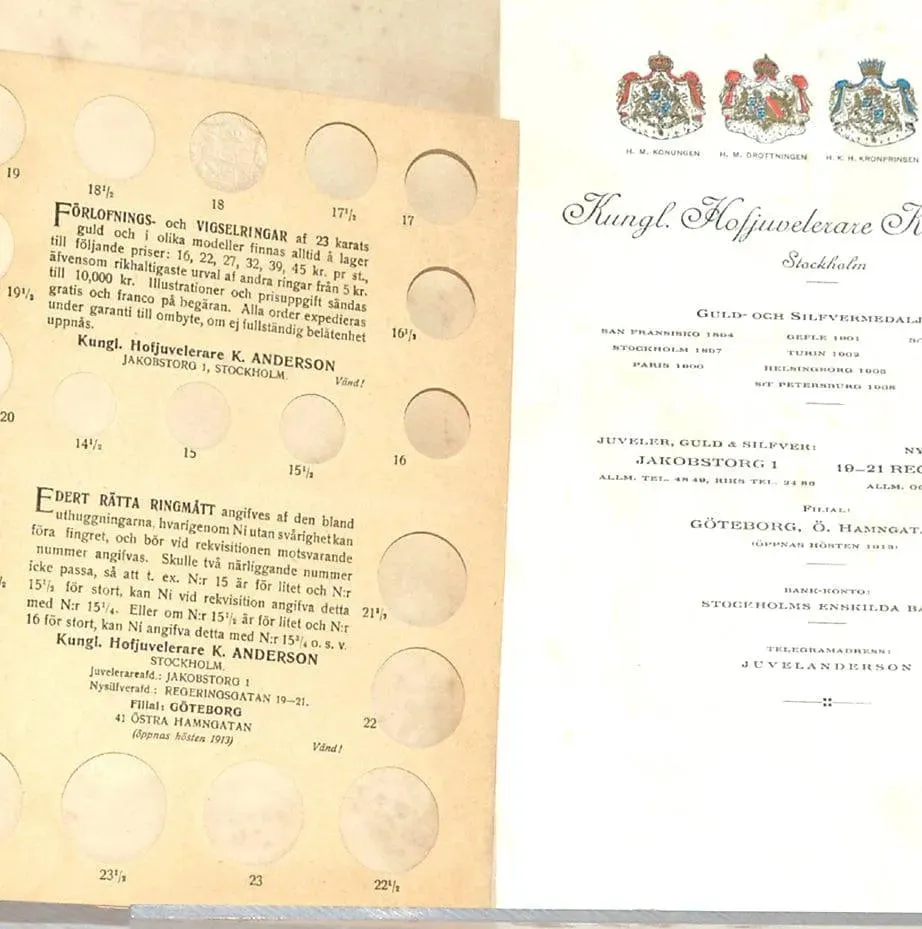 19
18¹/₂
18
17¹/₂
17
FÖRLOFNINGS- och VIGSELRINGAR af 23 karats
guld och i olika modeller finnas alltid å lager
till följande priser: 16, 22, 27, 32, 39, 45 kr. pr st.,
äfvensom rikhaltigaste urval af andra ringar från 5 kr.
till 10,000 kr. Illustrationer och prisuppgift sändas
gratis och franco på begäran. Alla order expedieras
under garanti till ombyte, om ej fullständig belåtenhet
uppnås.
Kungl. Hofjuvelerare K. ANDERSON
JAKOBSTORG 1, STOCKHOLM.
Vänd!
19¹/₂
16¹/₂
20
14¹/₂
15
15¹/₂
16
EDERT RÄTTA RINGMÅTT angifves af den bland
uthuggningarna, hvarigenom Ni utan svårighet kan
föra fingret, och bör vid rekvisitionen motsvarande
nummer angifvas. Skulle två närliggande nummer
icke passa, så att t. ex. N:r 15 är för litet och N:r
15¹/₂ för stort, kan Ni vid rekvisition angifva detta
med N:r 15¹/₄. Eller om N:r 15¹/₂ är för litet och N:r
16 för stort, kan Ni angifva detta med N:r 15³/₄ o. s. v.
Kungl. Hofjuvelerare K. ANDERSON
STOCKHOLM.
Juvelerareafd.: JAKOBSTORG 1
Nysilfverafd.: REGERINGSGATAN 19-21.
Filial: GÖTEBORG
41 ÖSTRA HAMNGATAN
(öppnas hösten 1913)
Vänd!
21¹/₂
22
23¹/₂
23
22¹/₂
H. M. KONUNGEN
H. M. DROTTNINGEN
H. K. H. KRONPRINSEN
Kungl. Hofjuvelerare K
Stockholm
GULD- OCH SILFVERMEDALJ
SAN FRANSISKO 1894
GEFLE 1901
STOCKHOLM 1897
TURIN 1902
PARIS 1900
HELSINGBORG 1903
S:T PETERSBURG 1908
JUVELER, GULD & SILFVER:
NY
JAKOBSTORG 1
19-21 REG
ALLM. TEL. 48 49, RIKS TEL. 24 86
ALLM. OC
FILIAL:
GÖTEBORG, Ö. HAMNGATA
(ÖPPNAS HÖSTEN 1913)
BANK-KONTO:
STOCKHOLMS ENSKILDA BA
TELEGRAMADRESS:
JUVELANDERSON